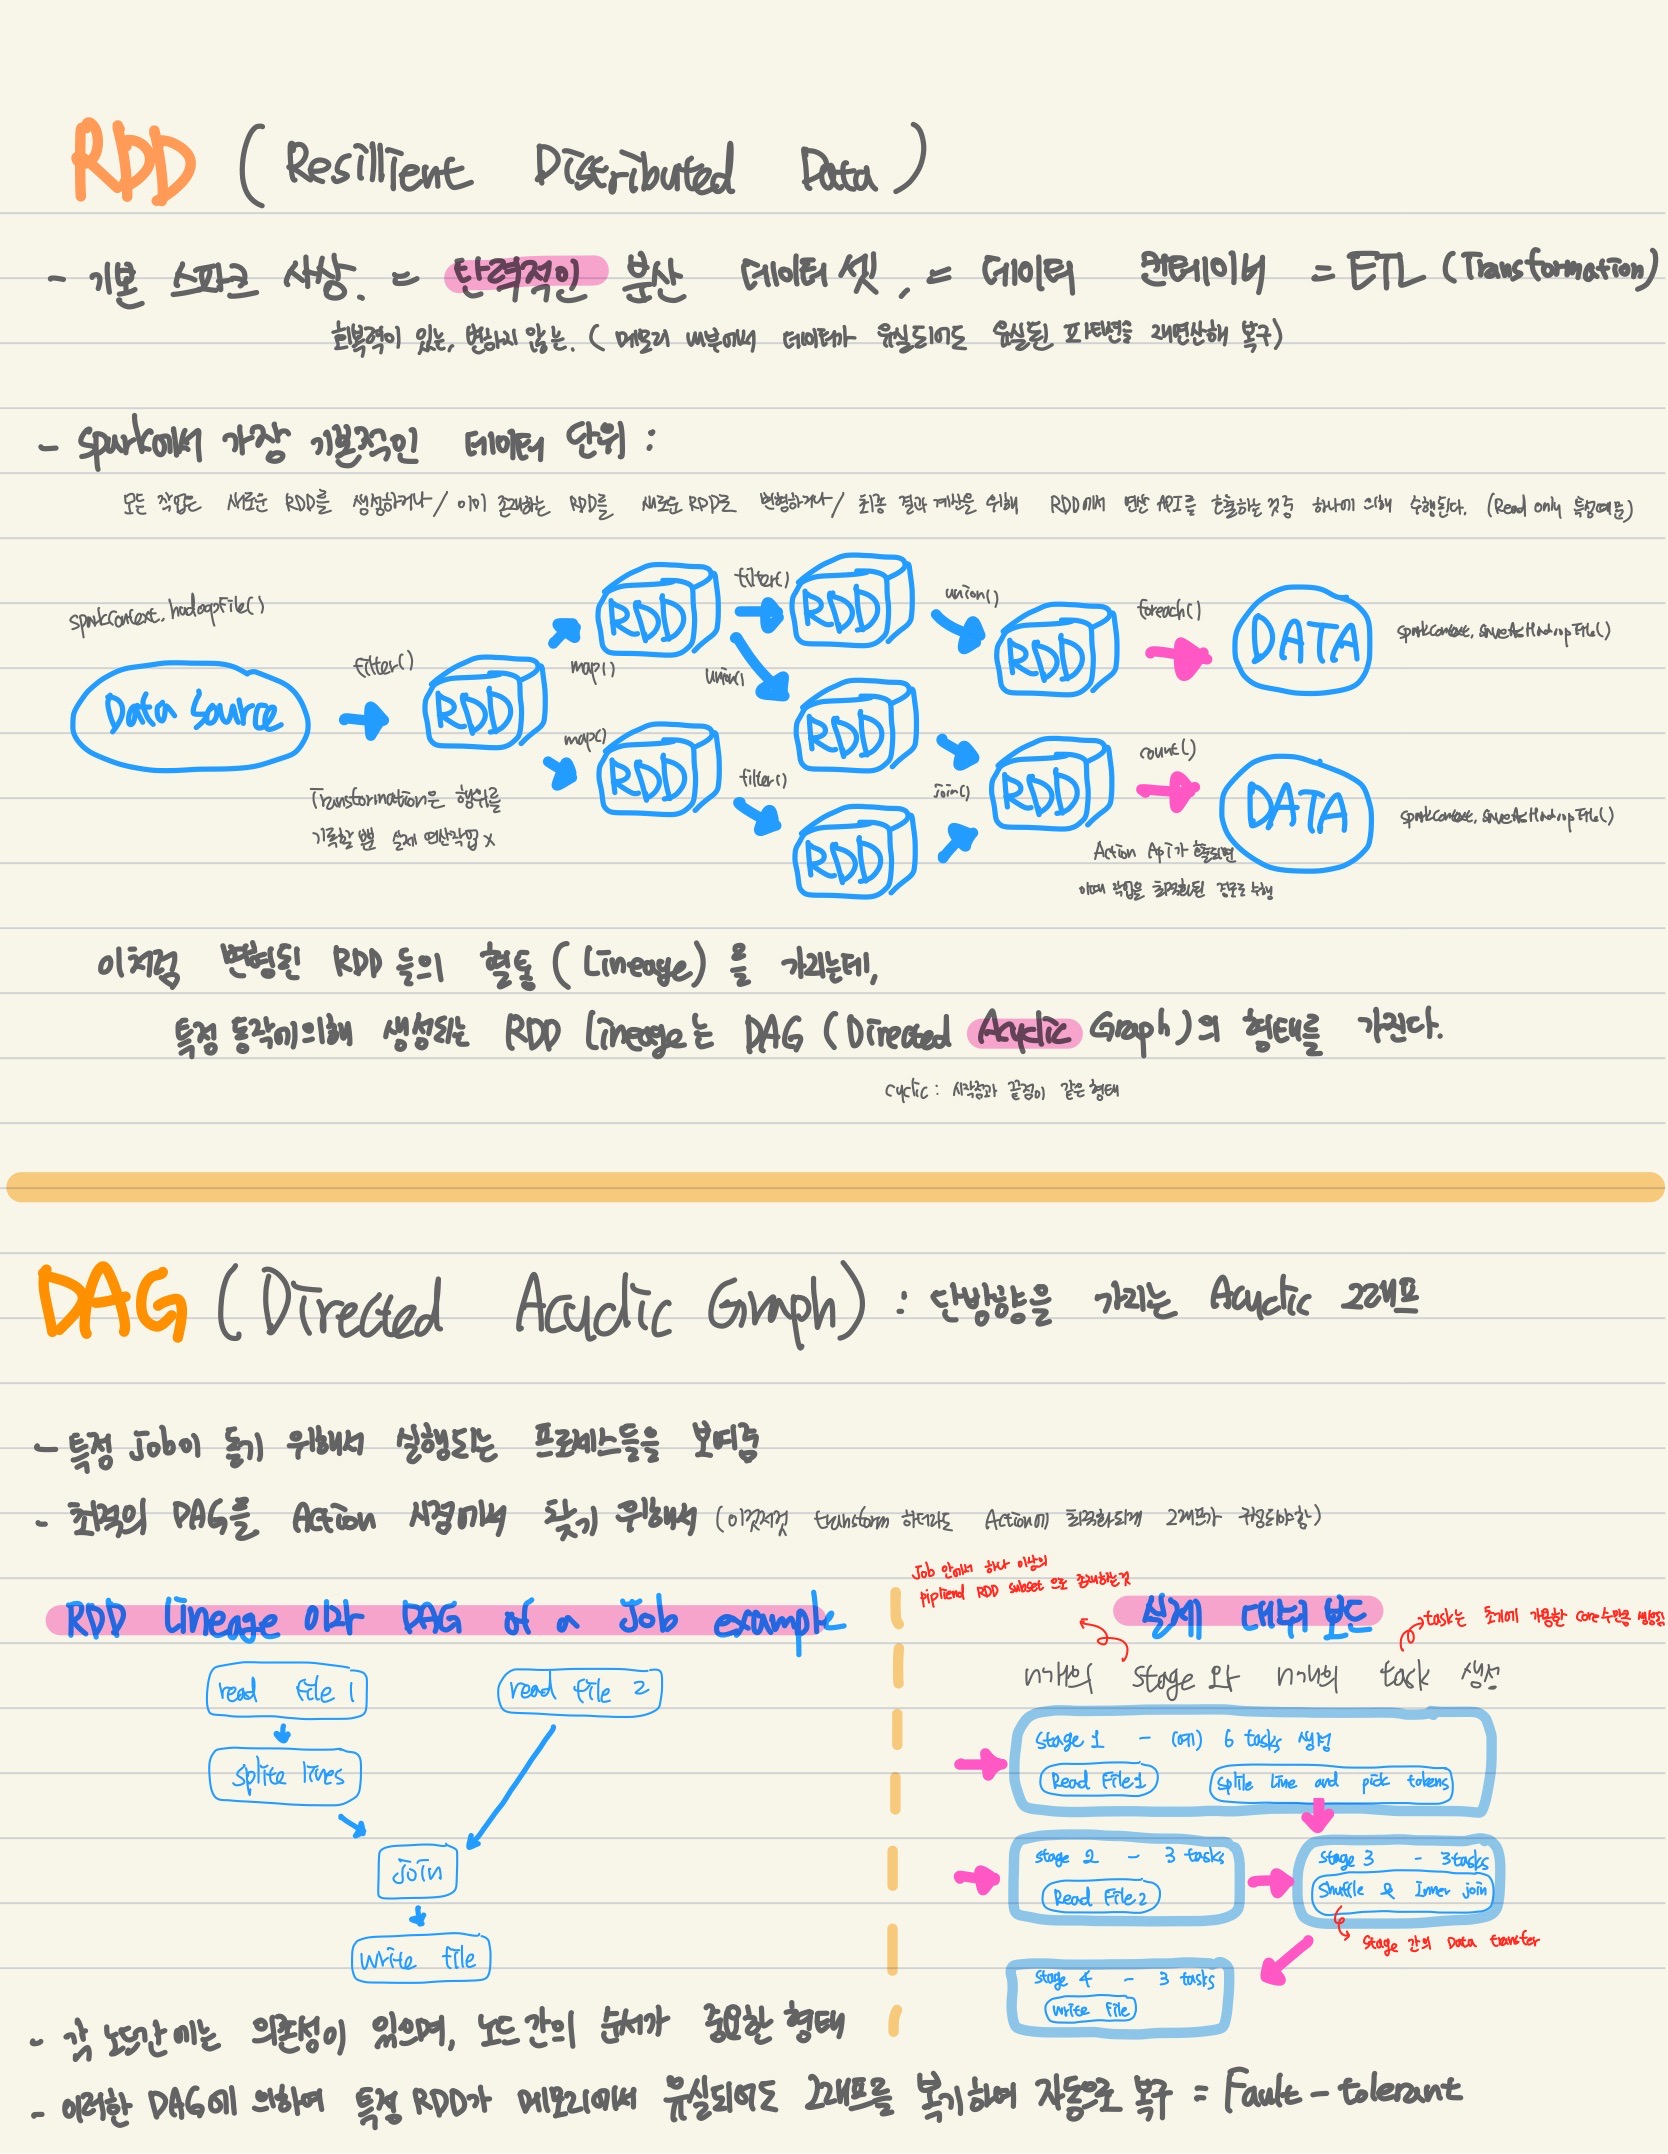 RDD (Resillient Distributed Data)
- 기본 스파크 사상. = 탄력적인 분산 데이터 셋, = 데이터 컨테이너 = ETL (Transformation)
회복력이 있는, 변하지 않는. (메모리 내부에서 데이터가 유실되어도 유실된 파티션을 재연산해 복구)
- Spark에서 가장 기본적인 데이터 단위 :
모든 작업은 새로운 RDD를 생성하거나/ 이미 존재하는 RDD를 새로운 RDD로 변형하거나/ 최종 결과 계산을 위해 RDD에서 연산 API를 호출하는 것중 하나에 의해 수행된다. (Read only 특성때문)
SparkContext.hadoopFile()
Data Source
filter()
RDD
map()
map()
RDD
RDD
filter()
union()
filter()
RDD
RDD
RDD
union()
join()
RDD
RDD
foreach()
count()
DATA
DATA
SparkContext.saveAsHadoopFile()
SparkContext.saveAsHadoopFile()
Transformation은 행위를
기록할 뿐 실제 연산작업 X
Action Api가 호출되면
이때 작업을 최적화된 경로로 수행
이처럼 변형된 RDD 들의 혈통 (Lineage) 를 가리는데,
특정 동작에의해 생성되는 RDD Lineage는 DAG (Directed Acyclic Graph)의 형태를 가진다.
cyclic : 시작점과 끝점이 같은 형태
DAG (Directed Acyclic Graph) : 단방향을 가리는 Acyclic 그래프
- 특정 Job이 돌기 위해서 실행되는 프로세스들을 보여줌
- 최적의 DAG를 Action 시점에서 찾기 위해서 (이것저것 transform 하더라도 Action에 최적화되게 그래프가 구성되야함)
RDD Lineage 이과 DAG of a Job example
read file 1
read file 2
splite lines
join
write file
Job 안에서 하나 이상의
pipliend RDD subset 으로 존재하는것
실제 대쉬 보드
task는 초기에 가용한 core수만큼 생성됨
n개의 stage 와 n개의 task 생성
Stage 1 - (예) 6 tasks 생성
Read File1
Splite line and pick tokens
Stage 2 - 3 tasks
Read File2
Stage 3 - 3tasks
Shuffle & Inner join
Stage 간의 Data transfer
Stage 4 - 3 tasks
write file
- 각 노드간에는 의존성이 있으며, 노드 간의 순서가 중요한 형태
- 이러한 DAG에 의하여 특정 RDD가 메모리에서 유실되어도 그래프를 복기하여 자동으로 복구 = Fault-tolerant